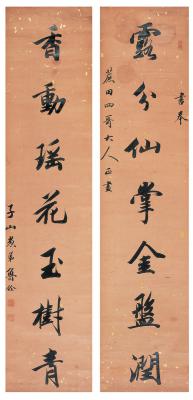 書奉
露分仙掌金盤潤
蔗田四哥大人正書
香動瑶花玉樹青
子山